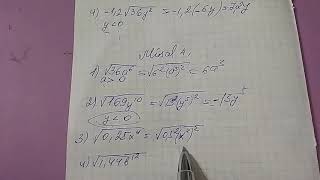 4) -1,2√36y² = -1,2(-6y)=7,2y
y<0
Misal 4.
1) √36a⁶ = √6²(a³)² = 6a³
a>0
2) √169y¹⁰ = √13²(y⁵)² = -13y⁵
y<0
3) √0,25x⁴ = √0,5²(x²)²
4) √1,44b¹²